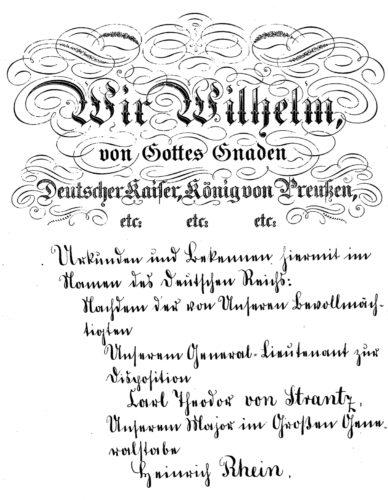 Wir Wilhelm,
von Gottes Gnaden
Deutscher Kaiser, König von Preußen,
etc: etc: etc:
Urkunden und bekennen hiermit im
Namen des Deutschen Reichs:
Nachdem der von Unseren Bevollmäch-
tigten
Unserem General-Lieutenant zur
Disposition
Carl Theodor von Strantz,
Unserem Major im Großen Gene-
ralstabe
Heinrich Rhein,